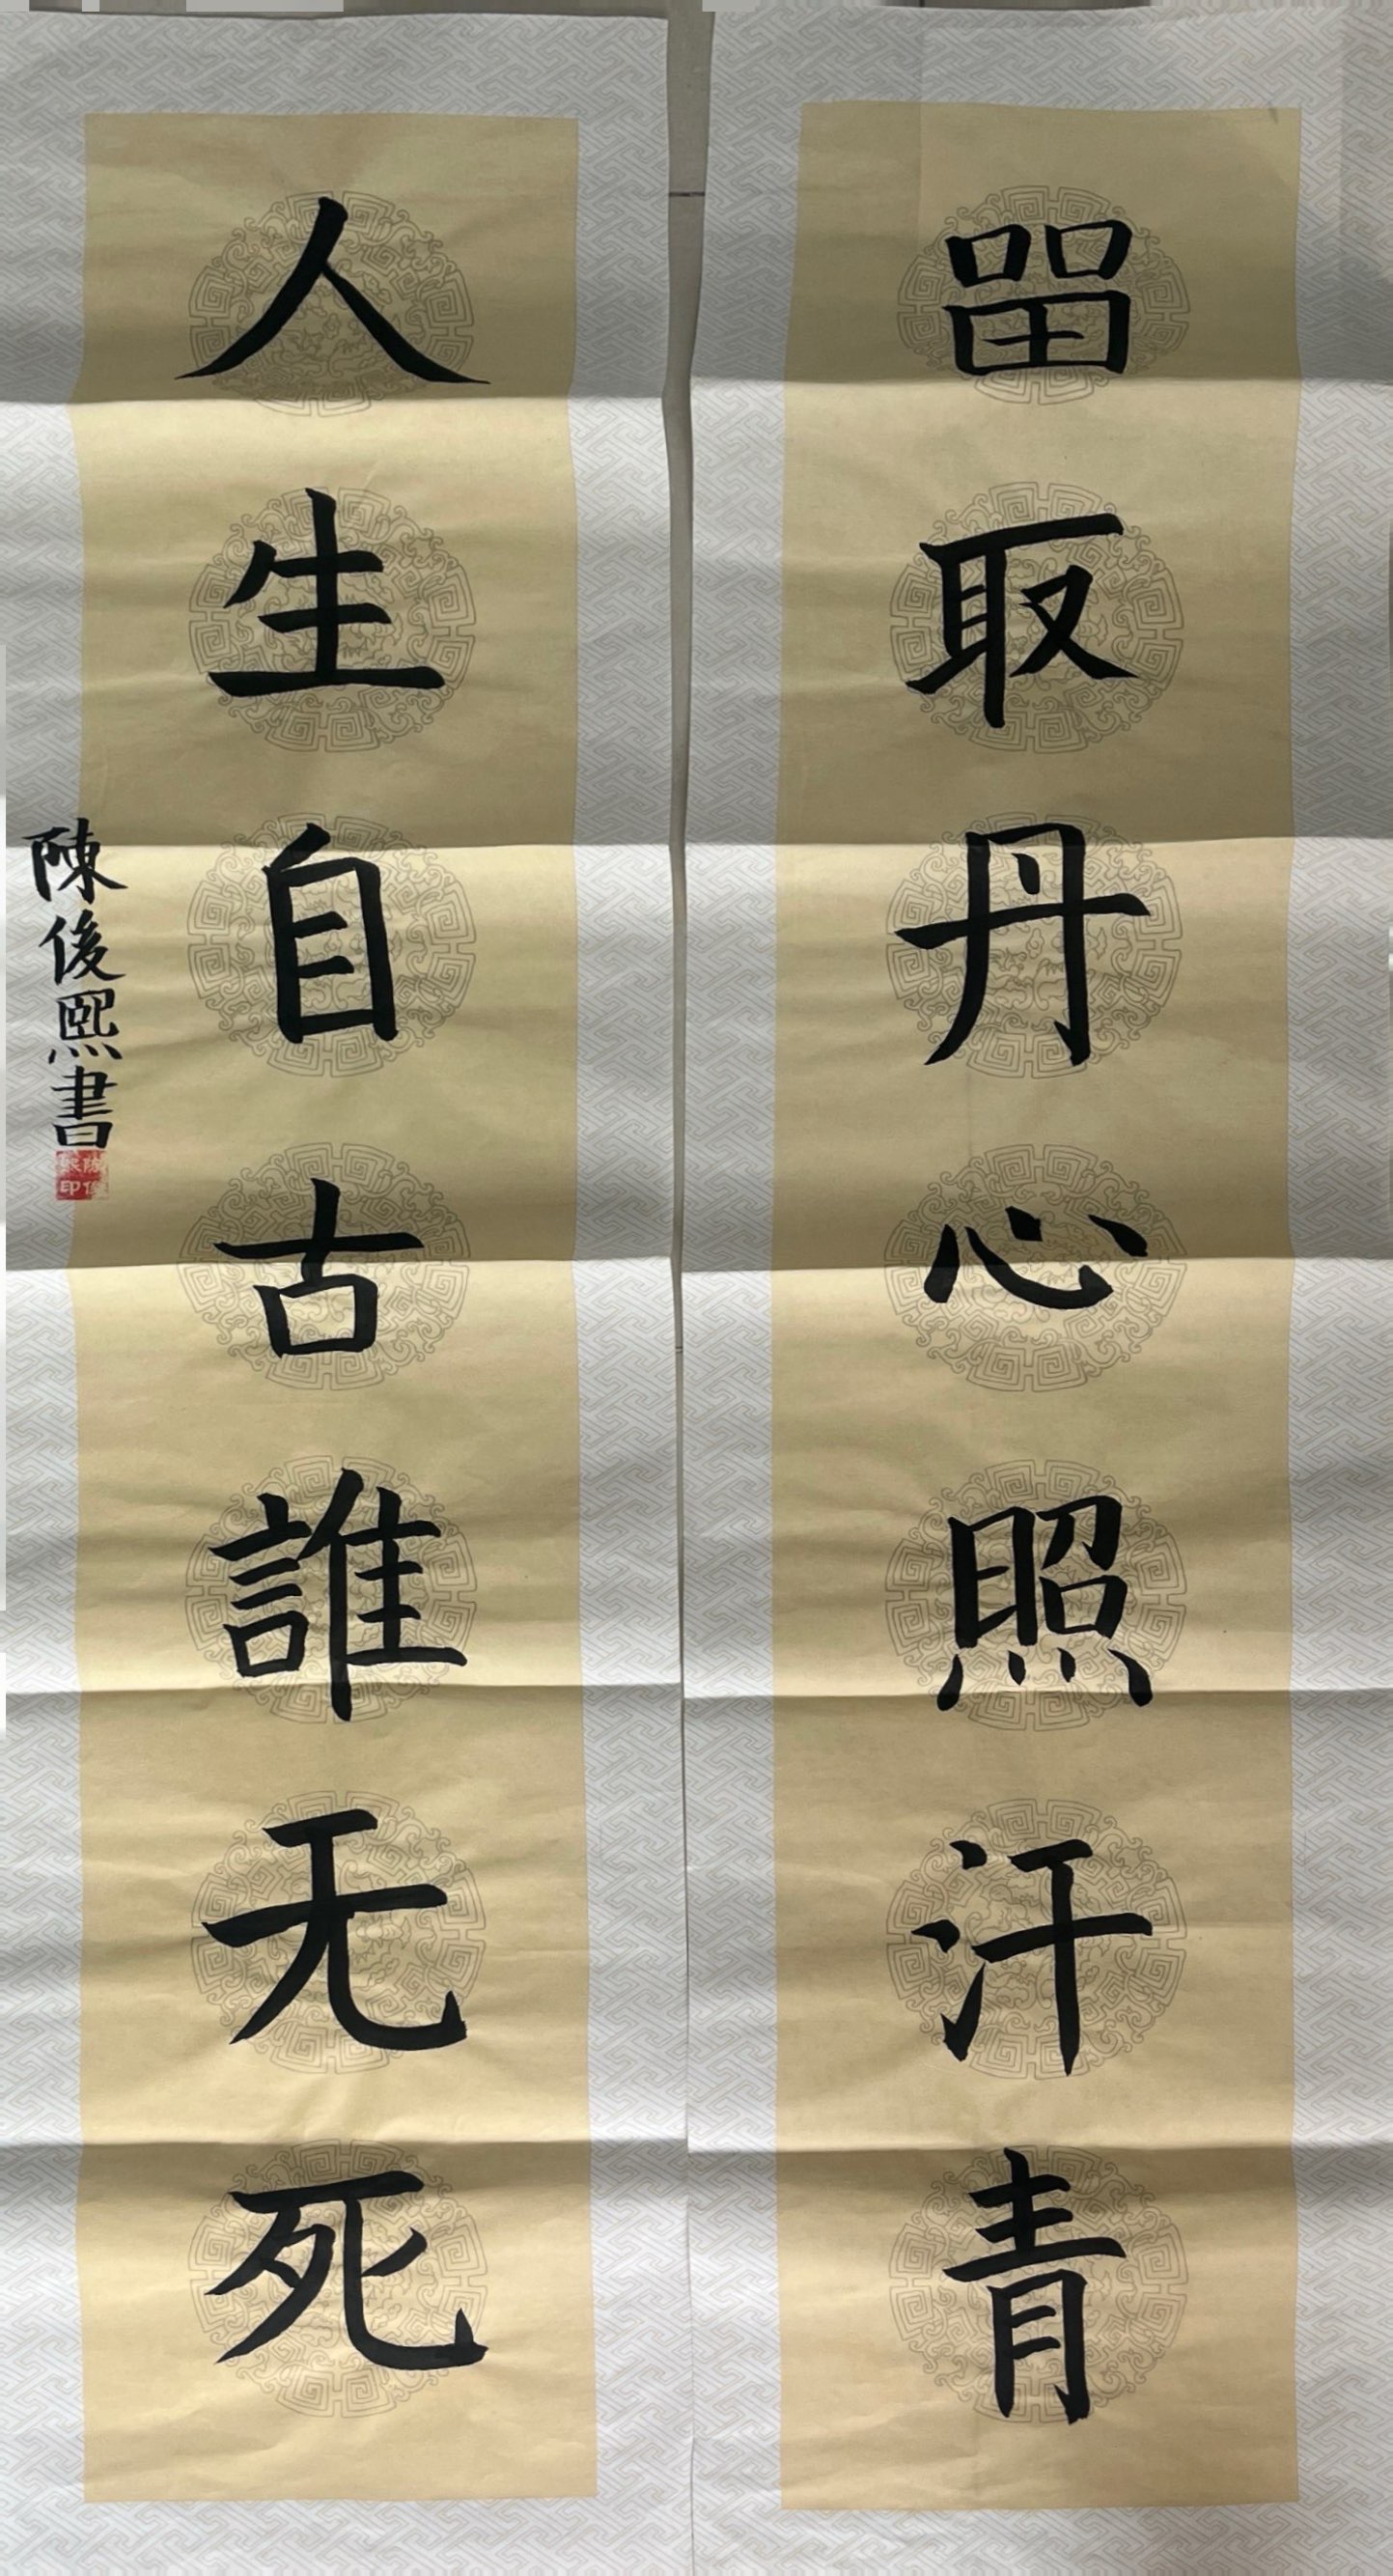 人生自古誰无死
㽞取丹心照汗青
陳俊熙書
陳俊熙印